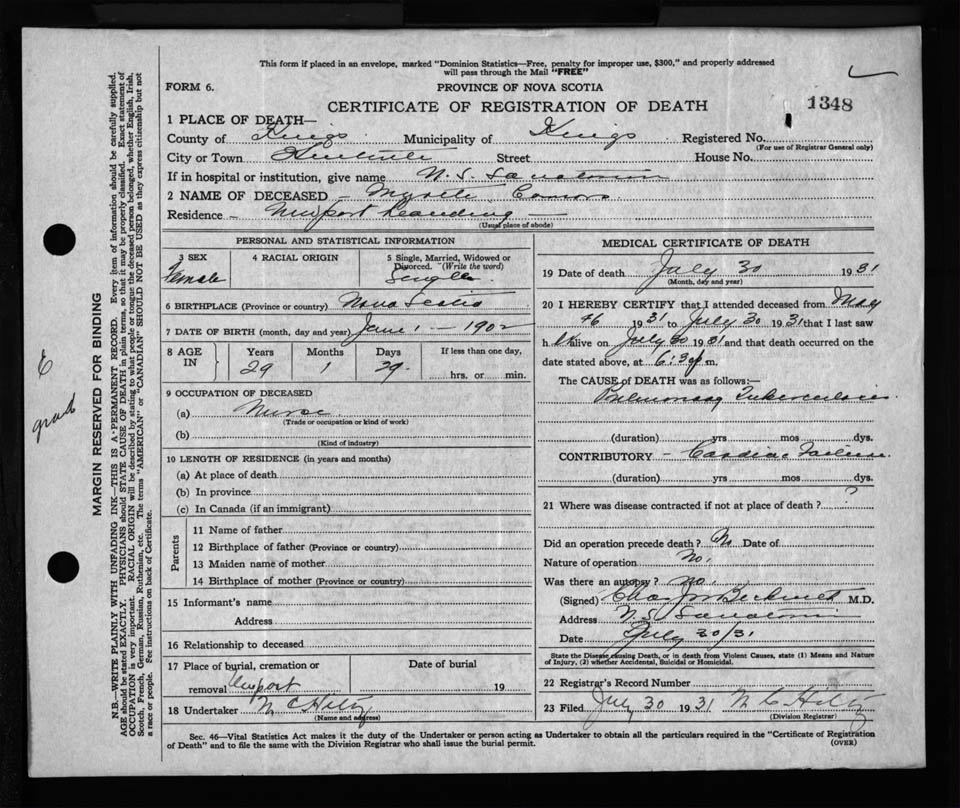 This form if placed in an envelope, marked "Dominion Statistics—Free, penalty for improper use, $300," and properly addressed
will pass through the Mail "FREE"
FORM 6.
PROVINCE OF NOVA SCOTIA
CERTIFICATE OF REGISTRATION OF DEATH
1348
1 PLACE OF DEATH—
County of Kings Municipality of Kings Registered No.
(For use of Registrar General only)
City or Town Kentville Street House No.
If in hospital or institution, give name N. S. Sanatorium
2 NAME OF DECEASED – Myrtle
Residence – Newport Landing
(Usual place of abode)
PERSONAL AND STATISTICAL INFORMATION
3 SEX
Female
4 RACIAL ORIGIN
5 Single, Married, Widowed or
Divorced. (Write the word)
Single
6 BIRTHPLACE (Province or country) Nova Scotia
7 DATE OF BIRTH (month, day and year) June 1 – 1902
8 AGE
IN
Years
29
Months
1
Days
29
If less than one day,
hrs. or min.
9 OCCUPATION OF DECEASED
(a) Nurse
(Trade or occupation or kind of work)
(b)
(Kind of industry)
10 LENGTH OF RESIDENCE (in years and months)
(a) At place of death
(b) In province
(c) In Canada (if an immigrant)
Parents
11 Name of father
12 Birthplace of father (Province or country)
13 Maiden name of mother
14 Birthplace of mother (Province or country)
15 Informant's name
Address
16 Relationship to deceased
17 Place of burial, cremation or
removal Newport
Date of burial
19
18 Undertaker N C Hiltz
(Name and address)
MEDICAL CERTIFICATE OF DEATH
19 Date of death July 30 1931
(Month, day and year)
20 I HEREBY CERTIFY that I attended deceased from May
1931 to July 30 1931 that I last saw
h alive on July 30 1931 and that death occurred on the
date stated above, at 6:30 p m.
The CAUSE of DEATH was as follows:—
Pulmonary Tuberculosis
(duration) yrs mos dys.
CONTRIBUTORY – Cardiac Failure
(duration) yrs mos dys.
21 Where was disease contracted if not at place of death? ?
Did an operation precede death? No Date of
Nature of operation No.
Was there an autopsy? no
(Signed) M.D.
Address N. S. Sanatorium
Date July 30/31
State the Disease causing Death, or in death from Violent Causes, state (1) Means and Nature
of Injury, (2) whether Accidental, Suicidal or Homicidal.
22 Registrar's Record Number
23 Filed July 30 1931 N C Hiltz
(Division Registrar)
Sec. 46—Vital Statistics Act makes it the duty of the Undertaker or person acting as Undertaker to obtain all the particulars required in the "Certificate of Registration
of Death" and to file the same with the Division Registrar who shall issue the burial permit.
(OVER)
MARGIN RESERVED FOR BINDING
N.B.—WRITE PLAINLY WITH UNFADING INK—THIS IS A PERMANENT RECORD. Every item of information should be carefully supplied.
AGE should be stated EXACTLY. PHYSICIANS should STATE CAUSE OF DEATH in plain terms, so that it may be properly classified. Exact statement of
OCCUPATION is very important. RACIAL ORIGIN will be described by stating to what people or tongue the deceased person belonged, whether English, Irish,
Scotch, French, German, Russian, Ruthenian, etc. The terms "AMERICAN" or "CANADIAN" SHOULD NOT BE USED as they express citizenship but not
a race or people. See instructions on back of Certificate.
grad